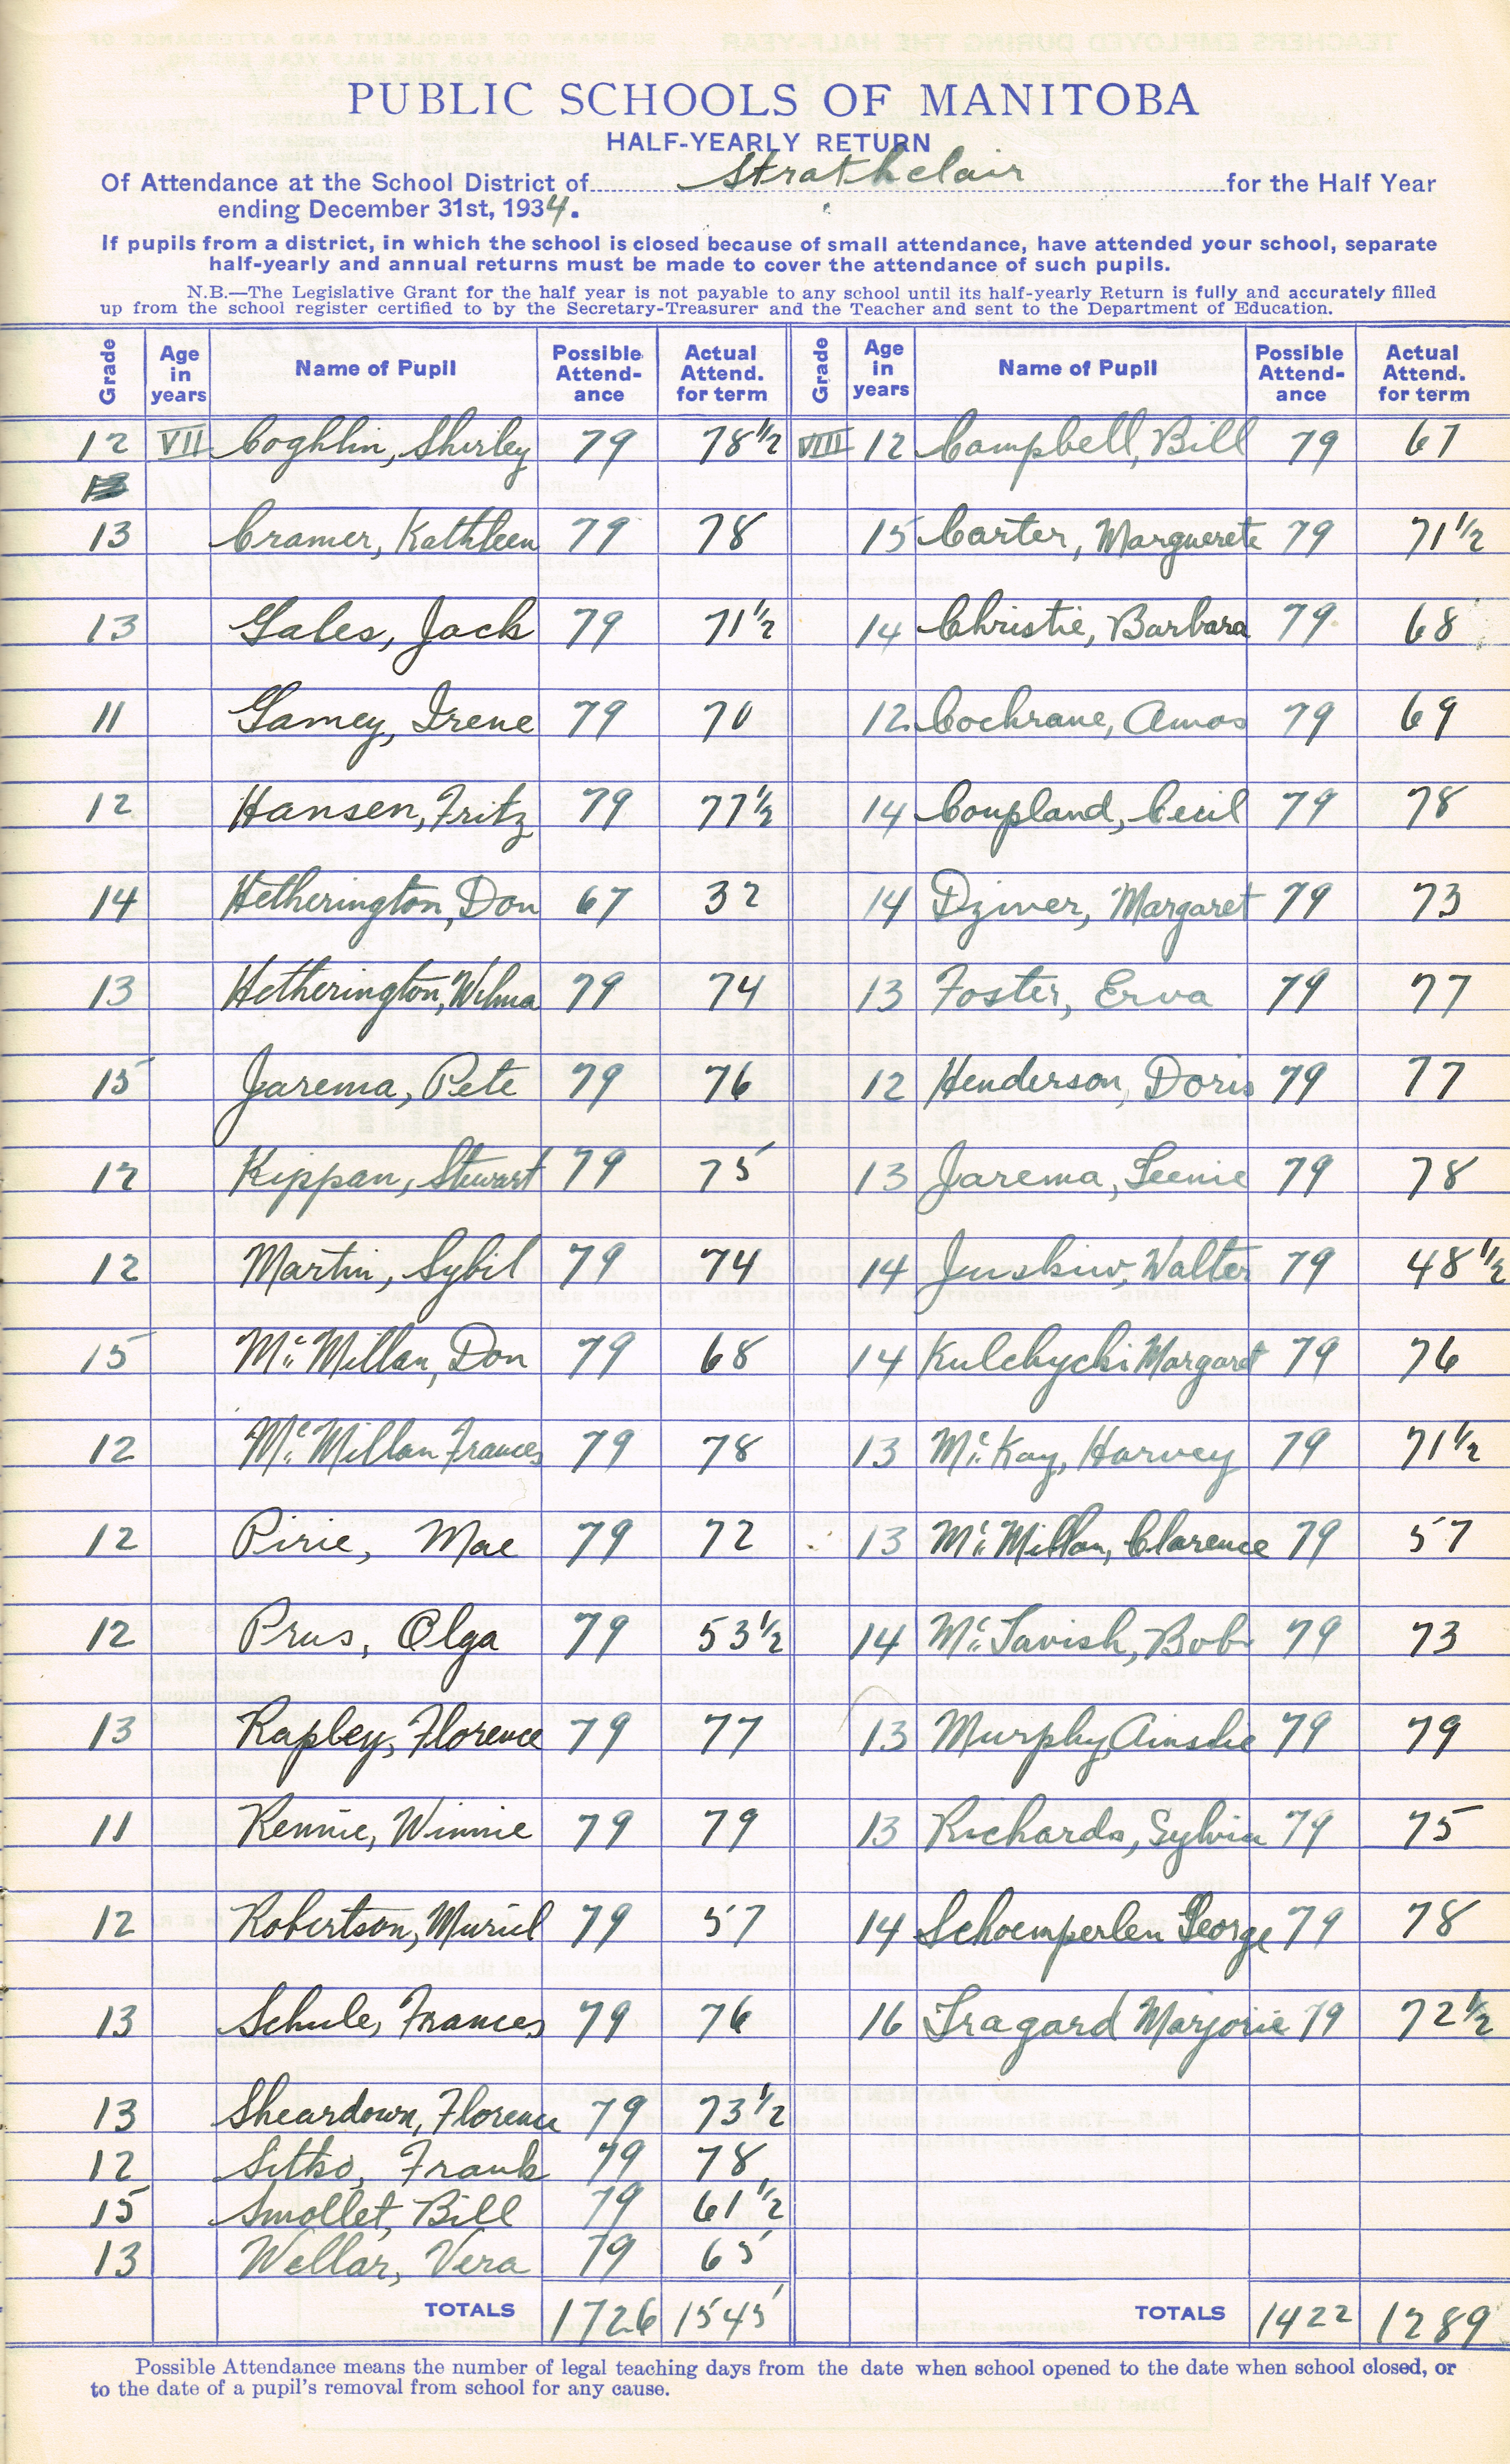 PUBLIC SCHOOLS OF MANITOBA
HALF-YEARLY RETURN
Of Attendance at the School District of Strathclair for the Half Year
ending December 31st, 1934.
If pupils from a district, in which the school is closed because of small attendance, have attended your school, separate
half-yearly and annual returns must be made to cover the attendance of such pupils.
N.B.—The Legislative Grant for the half year is not payable to any school until its half-yearly Return is fully and accurately filled
up from the school register certified to by the Secretary-Treasurer and the Teacher and sent to the Department of Education.
Grade Age in years Name of Pupil Possible Attend-ance Actual Attend. for term Grade Age in years Name of Pupil Possible Attend-ance Actual Attend. for term
12 VII Coghlin, Shirley 79 78½ VIII 12 Campbell, Bill 79 67
13 Cramer, Kathleen 79 78 15 Carter, Marguerete 79 71½
13 Gales, Jack 79 71½ 14 Christie, Barbara 79 68
11 Gamey, Irene 79 70 12 Cochrane, Amos 79 69
12 Hansen, Fritz 79 77½ 14 Coupland, Cecil 79 78
14 Hetherington, Don 67 32 14 Dziver, Margaret 79 73
13 Hetherington, Wilma 79 74 13 Foster, Erva 79 77
15 Jarema, Pete 79 76 12 Henderson, Doris 79 77
12 Kippan, Stewart 79 75 13 Jarema, Leenie 79 78
12 Martin, Sybil 79 74 14 Juskiw, Walter 79 48½
15 McMillan, Don 79 68 14 Kulchycki Margaret 79 76
12 McMillan Frances 79 78 13 McKay, Harvey 79 71½
12 Pirie, Mae 79 72 13 McMillan, Clarence 79 57
12 Prus, Olga 79 53½ 14 McTavish, Bob 79 73
13 Rapley, Florence 79 77 13 Murphy, Ainslie 79 79
11 Rennie, Winnie 79 79 13 Richards, Sylvia 79 75
12 Robertson, Muriel 79 57 14 Schoemperlen George 79 78
13 Schule, Frances 79 76 16 Tragard Marjorie 79 72½
13 Sheardown, Florence 79 73½
12 Sitko, Frank 79 78
15 Smollet, Bill 79 61½
13 Wellar, Vera 79 65
TOTALS 1726 1545 TOTALS 1422 1289
Possible Attendance means the number of legal teaching days from the date when school opened to the date when school closed, or
to the date of a pupil's removal from school for any cause.